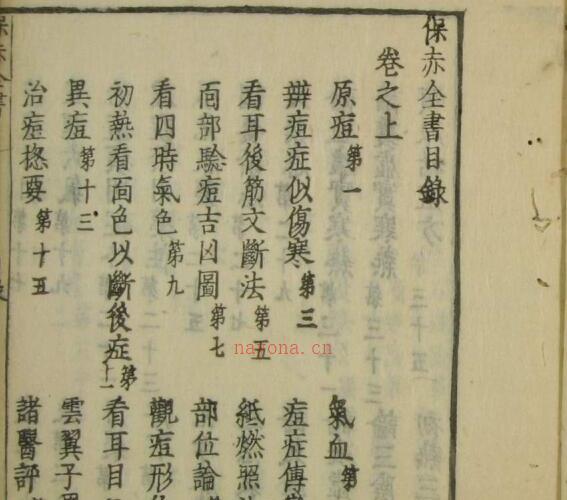 保赤全書目錄
卷之上
原痘第一 氣血第
辨痘症似傷寒第三 痘症傳
看耳後筋文斷法第五 紙燃照
面部驗痘吉凶圖第七 部位論
看四時氣色第九 觀痘形
初熱看面色以斷後症第十一 看耳目
異痘第十三 雲翼子
治痘揔要第十五 諸醫評
保赤全書
nayona.cn